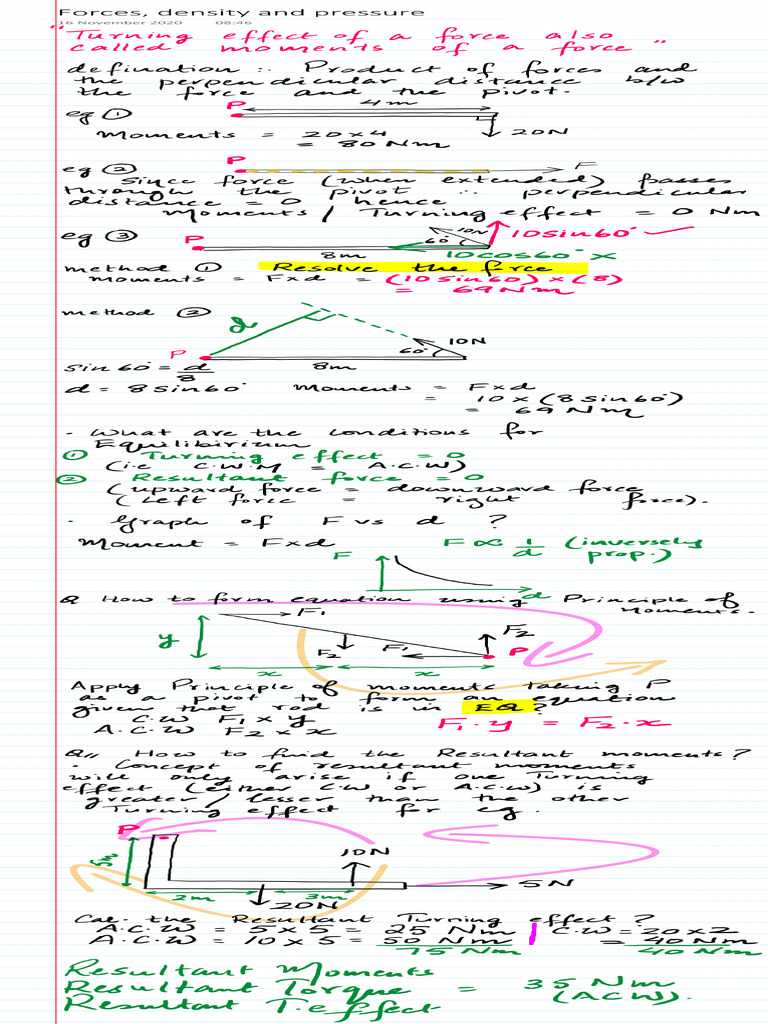 Forces, density and pressure
16 November 2020 08:46
"Turning effect of a force also
called moments of a force"
defination :- Product of forces and
the perpendicular distance b/w
the force and the pivot.
eg ① P 4m
20N
Moments = 20x4
= 80Nm
eg ② P F
Since force (when extended) passes
through the pivot ∴ perpendicular
distance = 0 hence
Moments / Turning effect = 0 Nm
eg ③ P 60° 10N 10sin60° ✓
8m 10cos60° x
method ① Resolve the force
moments = Fxd = (10sin60) x (8)
= 69Nm
method ② d
P 60° 10N
8m
sin60° = d/8
d = 8sin60° Moments = Fxd
= 10 x (8sin60°)
= 69Nm
· What are the conditions for
Equilibirium
① Turning effect = 0
(i.e C.W.M = A.C.W)
② Resultant force = 0
(upward force = downward force
(Left force = right force).
· Graph of F vs d ?
Moment = Fxd F ∝ 1/d (inversely
prop.)
F
d
Q How to form equation using Principle of
Moments.
F₁
y F₂ F₁ F₂ P
x x
Apply Principle of moments taking P
as a pivot to form an equation
given that rod is in EQ?
C.W F₁ x y
A.C.W F₂ x x
F₁.y = F₂.x
Q,, How to find the Resultant moments?
· Concept of resultant moments
will only arise if one Turning
effect (either C.W or A.C.W) is
greater / lesser than the other
Turning effect for eg.
P
5m 10N
2m 3m 5N
20N
Cal. the Resultant Turning effect?
A.C.W = 5x5 = 25 Nm | C.W = 20x2
A.C.W = 10x5 = 50 Nm = 40Nm
75 Nm 40Nm
Resultant Moments
Resultant Torque = 35 Nm
Resultant T.effect (ACW).